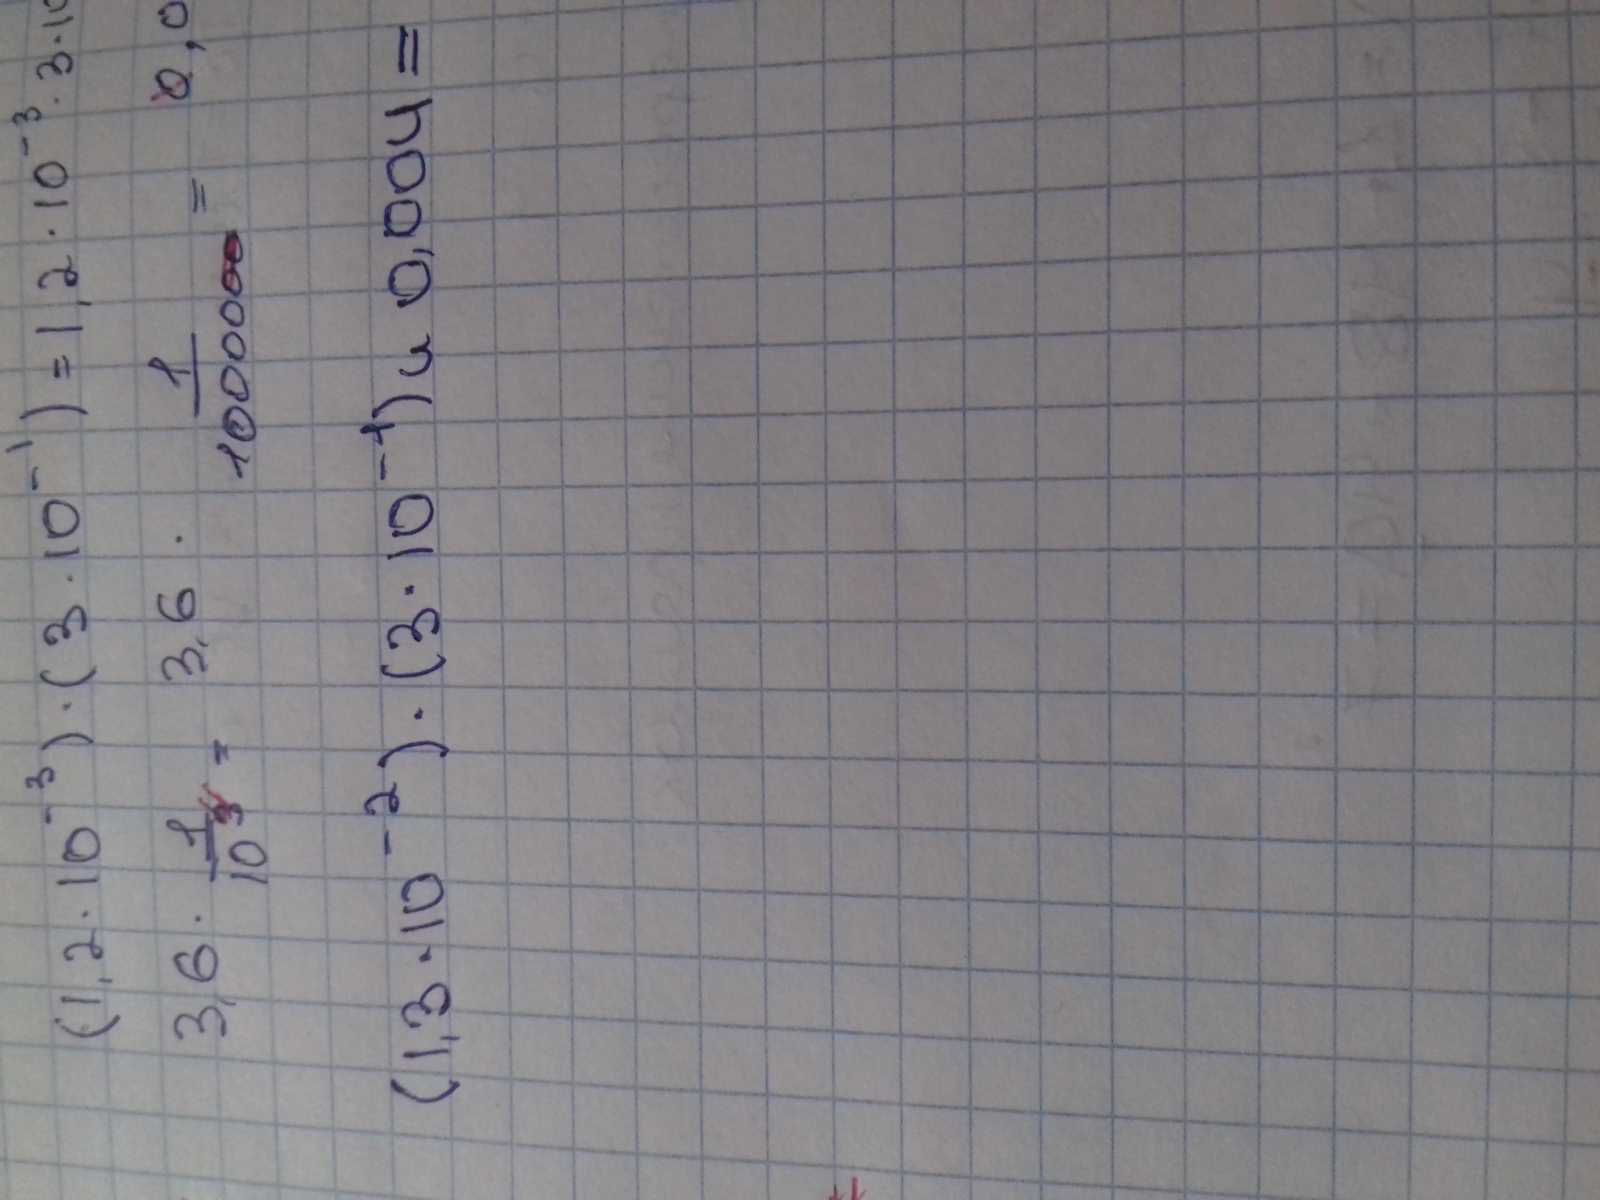 (1,2 · 10⁻³) · (3 · 10⁻¹) = 1,2 · 10⁻³ · 3 · 10
3,6 · 1/10 = 3,6 · 1/10000 = 0,0
(1,3 · 10⁻²) · (3 · 10⁻¹) и 0,004 =